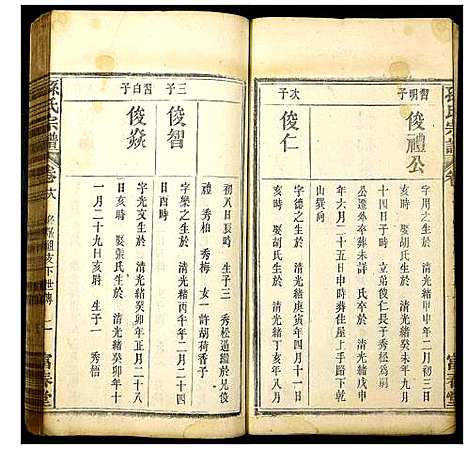 孫氏宗譜
卷
富春堂
習明子
俊禮公
字用之生於 清光緒甲申年二月初三日
亥時 娶胡氏生於 清光緒癸未年九月
十四日子時 立弟俊仁長子秀松為嗣
公遷外卒葬未詳 氏卒 清光緒戊申
年六月二十五日申時葬住屋上手路下乾
山巽向
次子
俊仁
字德之生於 清光緒庚寅年四月十一日
亥時 娶胡氏生於 清光緒癸巳年八月
初八日亥時 生子三 秀松過繼於兄俊
禮 秀柏 秀梅 女一 許胡荷香子
三子
俊智
字樂之生於 清光緒丙午年二月二十四
日酉時
習白子
俊焱
字光文生於 清光緒癸卯年正月二十八
日亥時 娶張氏生於 清光緒癸卯年十
一月二十九日亥時 生子一 秀悟
孫氏宗譜
卷
支下世傳
二
富春堂